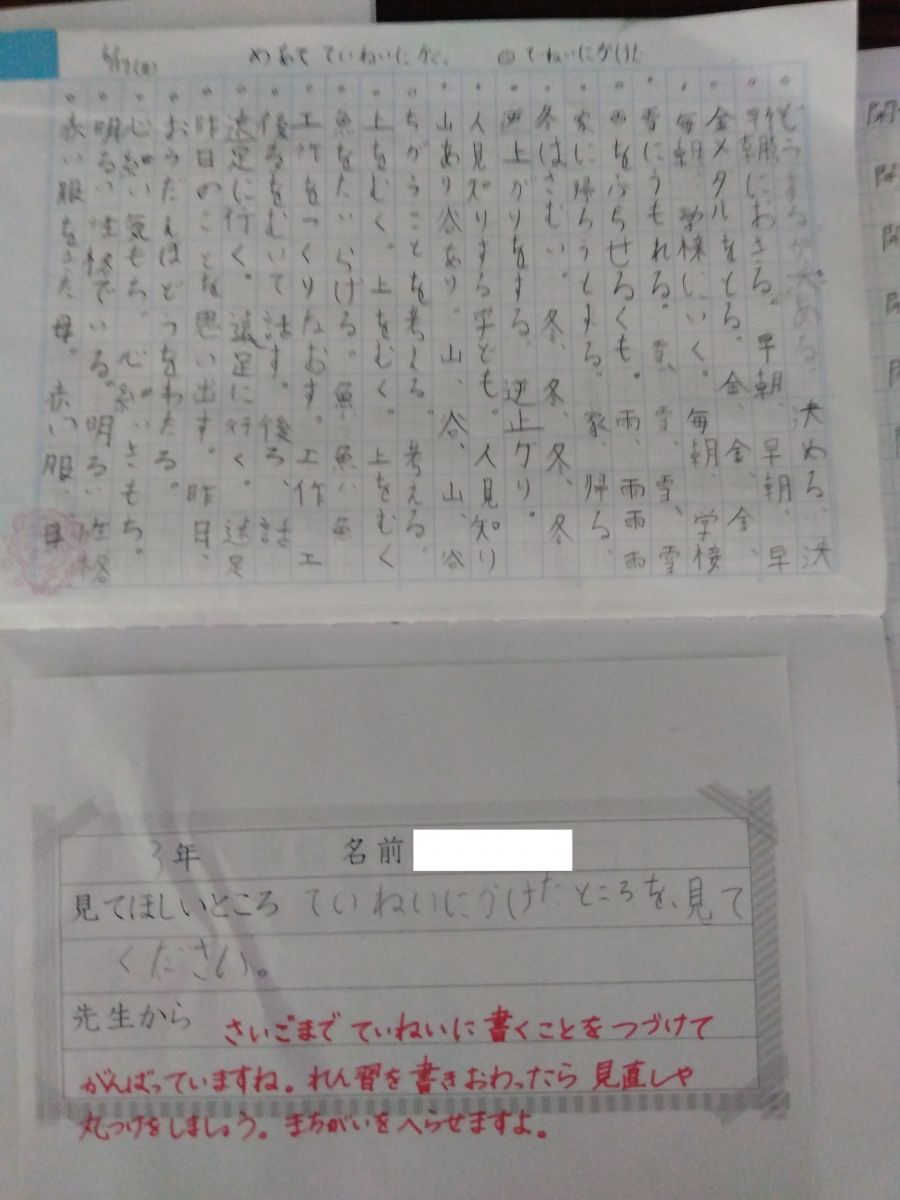 6/17(月) めあて ていねいにかく。 ◎ ていねいにかけた
もうする犬がある。 決める、決
早朝におきる。早朝、早朝、早
金メダルをとる。金、金、金、
毎朝、学校にいく。毎朝、学校
雪にうもれる。雪、雪、雪、雪
雨をふらせるくも。雨、雨雨雨
家に帰ろうとする。家、帰る、
冬はさむい。冬、冬、冬、冬
逆上がりをする。逆上がり。
人見知りする子ども。人見知り
山あり谷あり。山、谷、山、谷
ちがうことを考える。考える。
上をむく。上をむく。上をむく
魚をたいらげる。魚、魚、魚
工作をつくりなおす。工作 工
後ろをむいて話す。後ろ、話
遠足に行く。遠足に行く、遠足
昨日のことを思い出す。昨日、
おうだんほどうをわたる。
心細い気もち。心細いきもち。
明るい性格でいる。明るい性格
赤い服をきた母。赤い服、母
3年 名前
見てほしいところ ていねいにかけたところを、見て
ください。
先生から さいごまで ていねいに 書くことを つづけて
がんばっていますね。れん習を書きおわったら 見直しや
丸つけをしましょう。まちがいをへらせますよ。